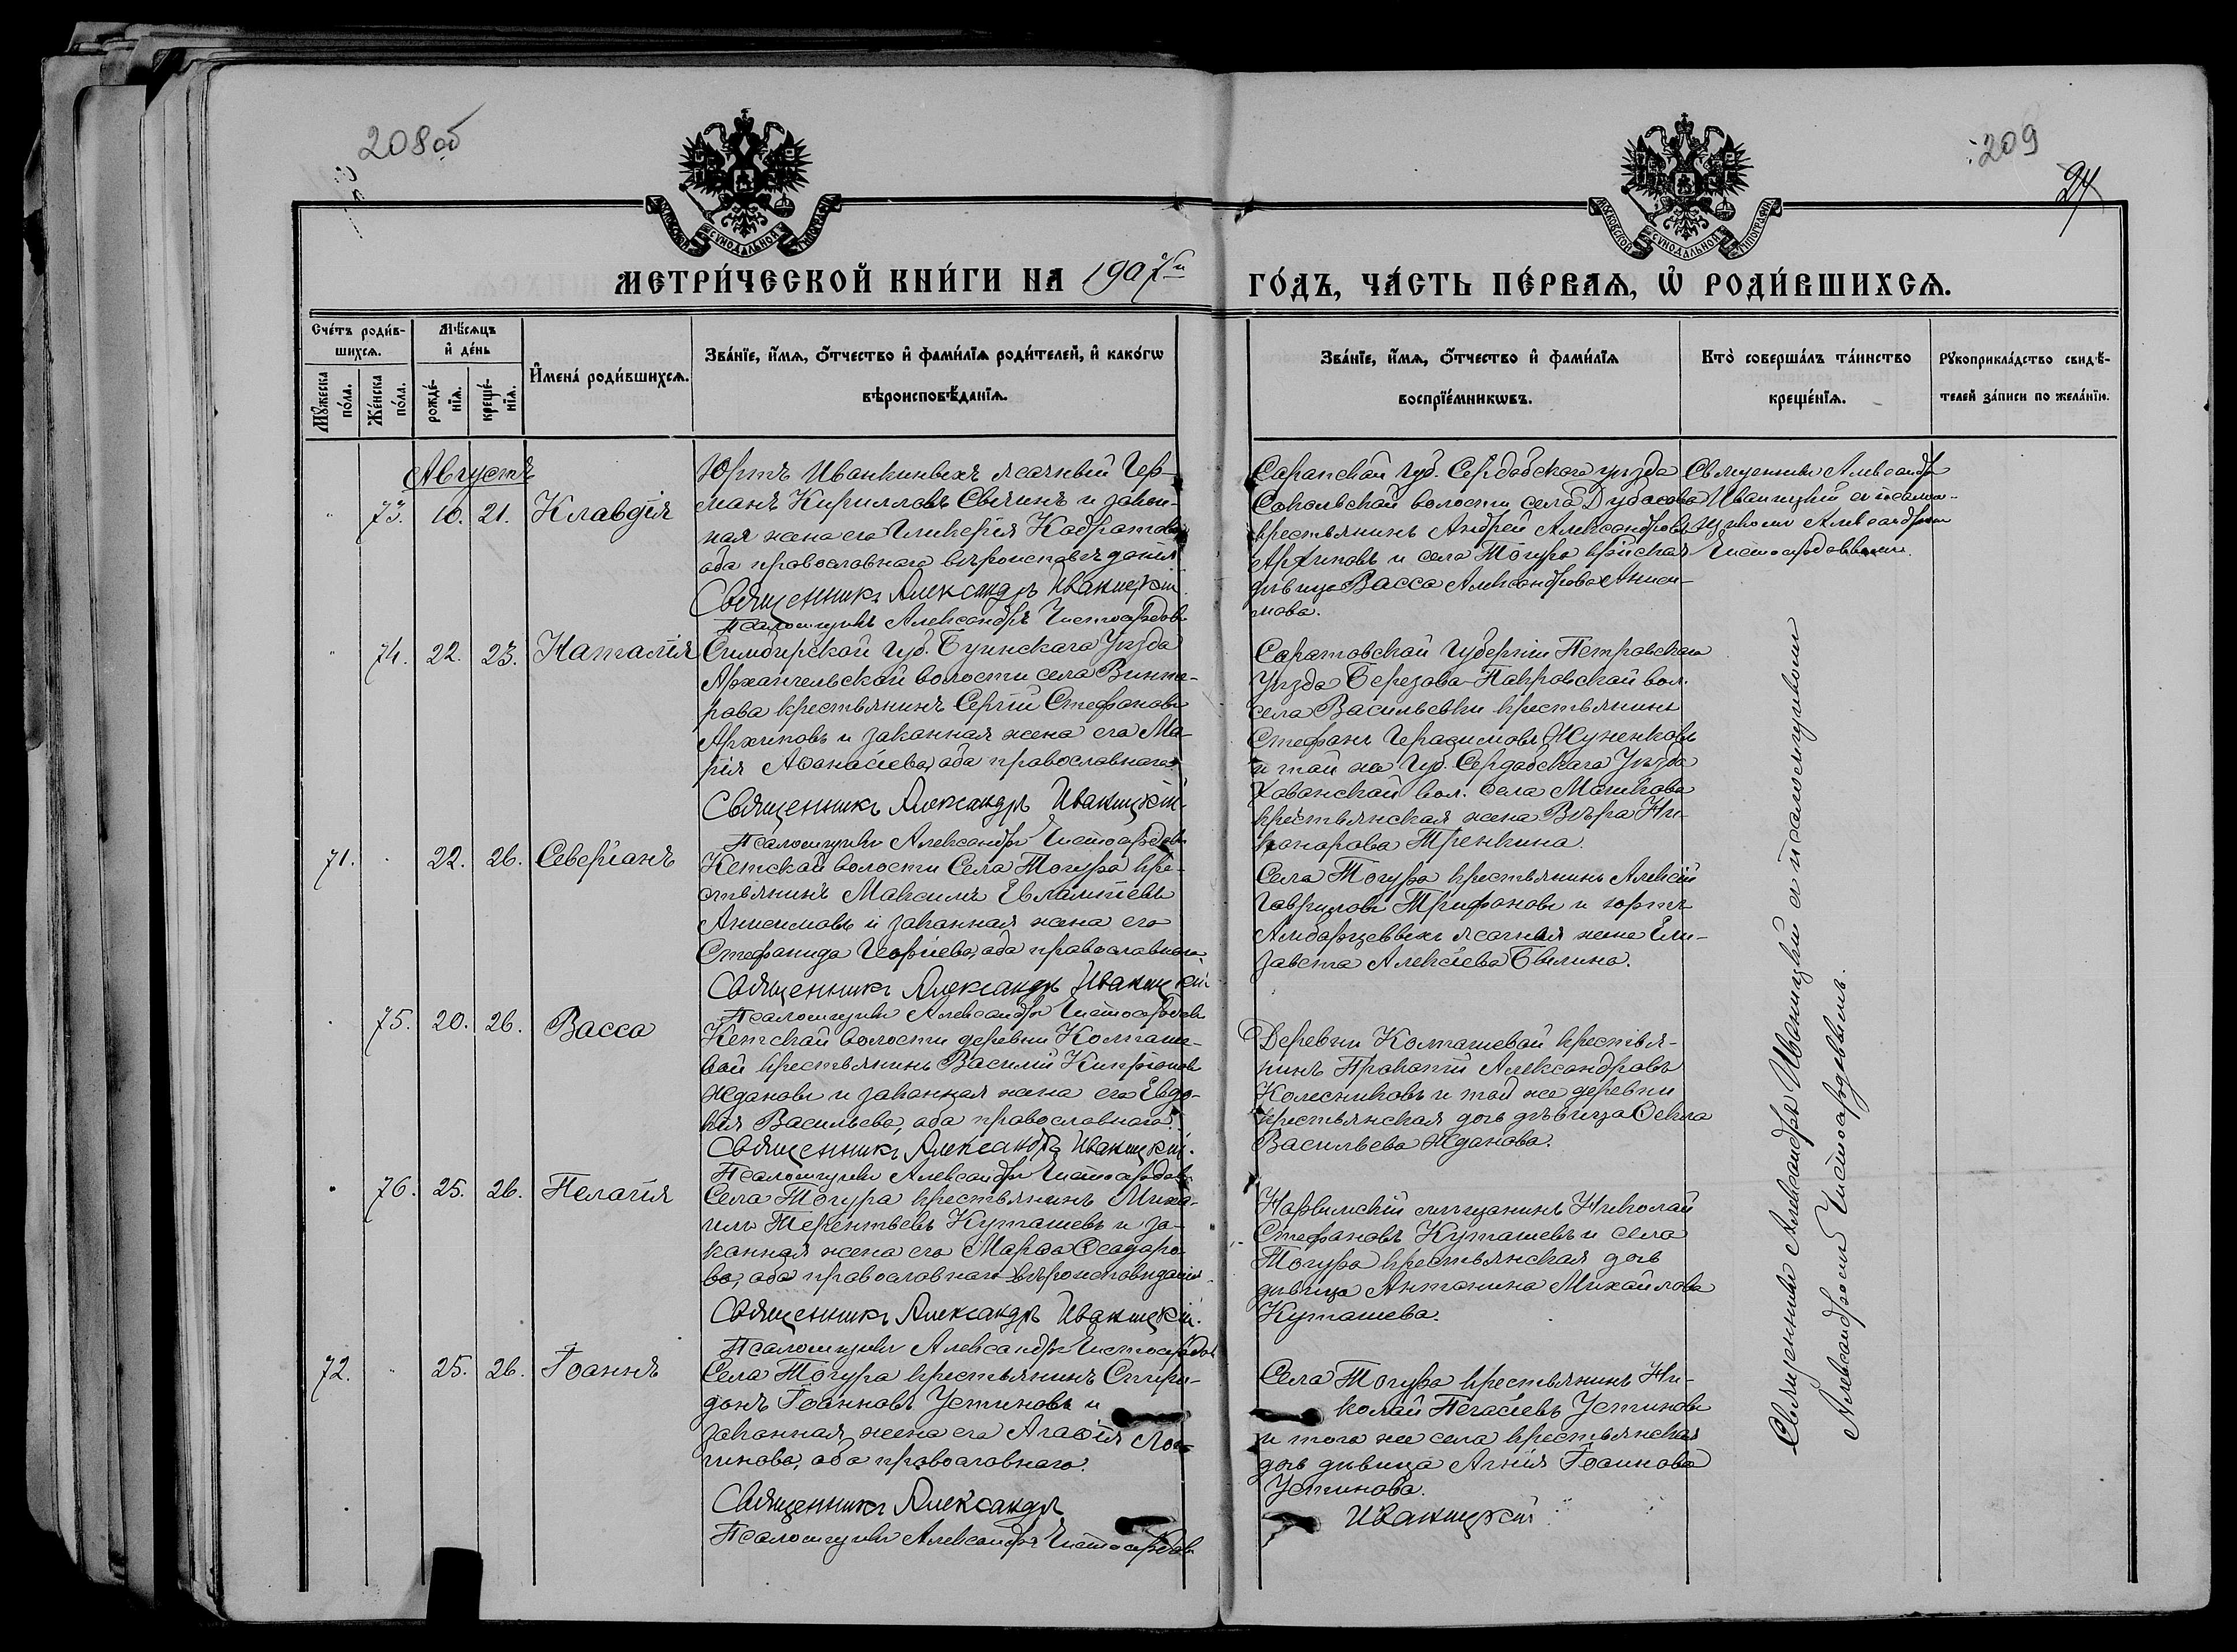 208 об
209
24
МОСКОВСКОЙ СѴНОДАЛЬНОЙ ТИПОГРАФІИ
МОСКОВСКОЙ СѴНОДАЛЬНОЙ ТИПОГРАФІИ
МЕТРИ́ЧЕСКОЙ КНИ́ГИ НА 1907й
ГО́ДЪ, ЧА́СТЬ ПЕ́РВАѦ, Ѡ҆ РОДИ́ВШИХСѦ.
Сче́тъ роди́в-
шихсѧ.
Мꙋ́жеска
по́ла.
Же́нска
по́ла.
Мѣ́сѧцъ
и҆ де́нь
рожде́-
нїѧ.
креще́-
нїѧ.
И҆мена̀ роди́вшихсѧ.
Зва́нїе, и҆́мѧ, ѻ҆́тчество и҆ фами́лїѧ роди́телей, и҆ како́гѡ
вѣроисповѣ́данїѧ.
Зва́нїе, и҆́мѧ, ѻ҆́тчество и҆ фами́лїѧ
воспрїе́мникѡвъ.
Кто̀ соверша́лъ та́инство
креще́нїѧ.
Рꙋкоприкла́дство свидѣ́-
телей за́писи по жела́нїю.
Августъ
73. 10. 21. Клавдія
Юртъ Иванкиныхъ ясачный Гер-
манъ Кирилловъ Свининъ и закон-
ная жена его Гликерія Кодратова
оба православнаго вѣроисповѣданія
Священникъ Александръ Иваницкій
Псаломщикъ Александръ Чистосердовъ
Саратской губ. Сердобского уѣзда
Сокольской волости села Дубасова
крестьянинъ Андрей Александровъ
Архиповъ и села Тогура крестьская
дѣвица Васса Александрова Аниси-
мова.
Священникъ Александръ
Иваницкій съ псалом-
щикомъ Александромъ
Чистосердовымъ.
74. 22. 23. Наталія
Симбирской губ. Буинскаго Уѣзда
Архангельской волости села
рова крестьянинъ Сергій Стефановъ
Архиповъ и законная жена его Ма-
рія Аѳанасіева, оба православнаго
Священникъ Александръ Иваницкій.
Псаломщикъ Александръ Чистосердовъ
Саратовской губерніи Петровскаго
Уѣзда Березова-Покровской вол.
села Васильевки крестьянинъ
Стефанъ Герасимовъ
и той же губ. Сердобскаго Уѣзда
Хованской вол. села
крестьянская жена Вѣра Ни-
канорова Тренкина.
71. 22. 26. Северіанъ
Кетской волости Села Тогура кре-
стьянинъ Максимъ Евлампіевъ
Анисимовъ и законная жена его
Стефанида Георгіева, оба православнаго
Священникъ Александръ Иваницкій
Псаломщикъ Александръ Чистосердовъ
Села Тогура крестьянинъ Алексій
Гавриловъ Трифоновъ и юртъ
Амбарцевыхъ ясачная жена Ели-
завета Алексіева Былина.
75. 20. 26. Васса
Кетской волости деревни Колпаше-
вой крестьянинъ Василій Кипріановъ
Ждановъ и законная жена его Евдо-
кія Васильева, оба православнаго.
Священникъ Александръ Иваницкій.
Псаломщикъ Александръ Чистосердовъ
Деревни Колпашевой крестья-
нинъ Прокопій Александровъ
Колесниковъ и той же деревни
крестьянская дочь дѣвица Ѳекла
Васильева Жданова.
76. 25. 26. Пелагія
Села Тогура крестьянинъ Миха-
илъ Терентьевъ Куташевъ и за-
конная жена его Марѳа Ѳеодоро-
ва, оба православнаго вѣроисповѣданія.
Священникъ Александръ Иваницкій.
Псаломщикъ Александръ Чистосердовъ
Нарымскій мѣщанинъ Николай
Стефановъ Куташевъ и села
Тогура крестьянская дочь
дѣвица Антонина Михайлова
Куташева.
72. 25. 26. Іоаннъ
Села Тогура крестьянинъ Спири-
донъ Іоанновъ Устиновъ и
законная жена его Агаѳія Лог-
гинова, оба православнаго.
Священникъ Александръ
Псаломщикъ Александръ Чистосердовъ
Села Тогура крестьянинъ Ни-
колай Пегасіевъ Устиновъ
и того же села крестьянская
дочь дѣвица Агнія Іоаннова
Устинова.
Иваницкій
Священникъ Александръ Иваницкій съ псаломщикомъ
Александромъ Чистосердовымъ.